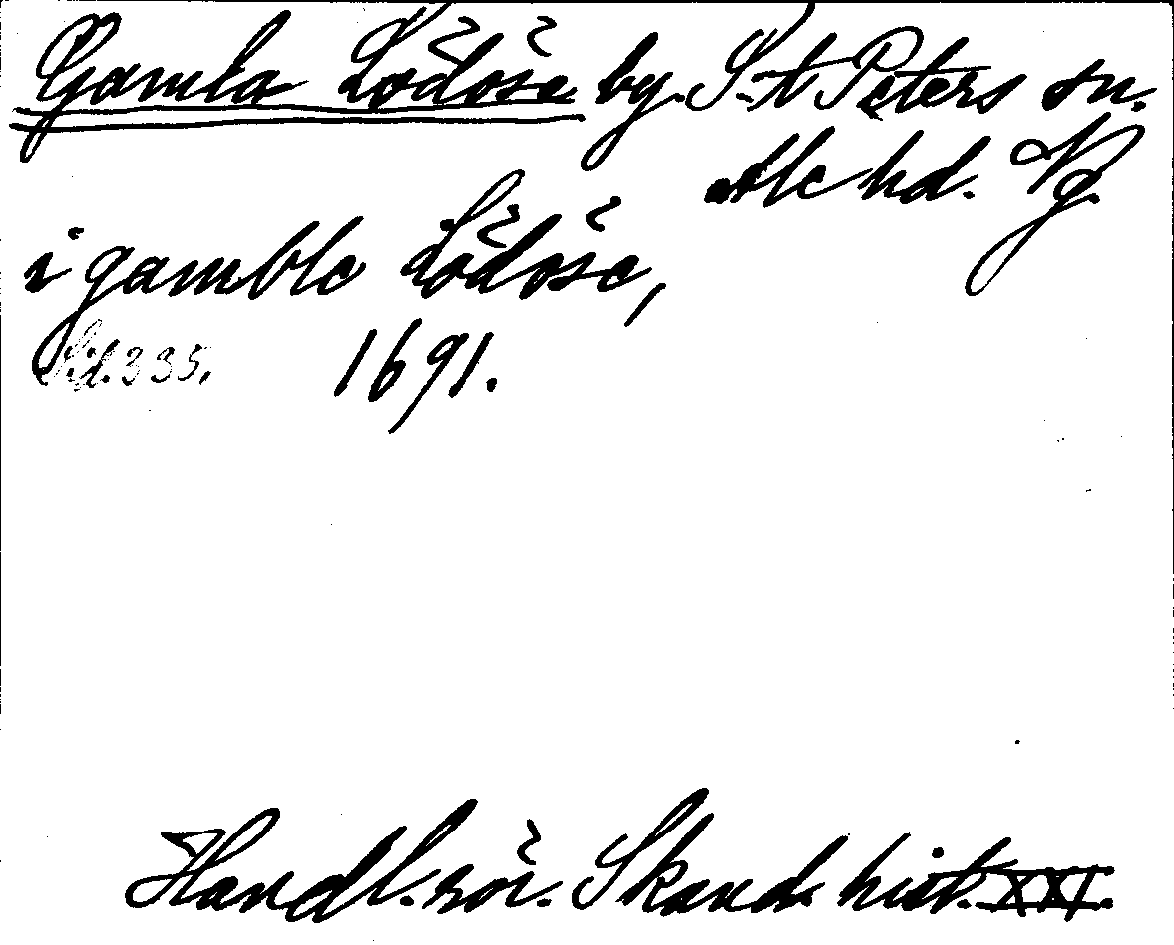 Gamla Lödöse by. S:t Peters sn.
Ale hd. Vg.
i gamble Lödöse,
Sid. 335. 1691.
Handl. rör. Skand. hist. XXI.